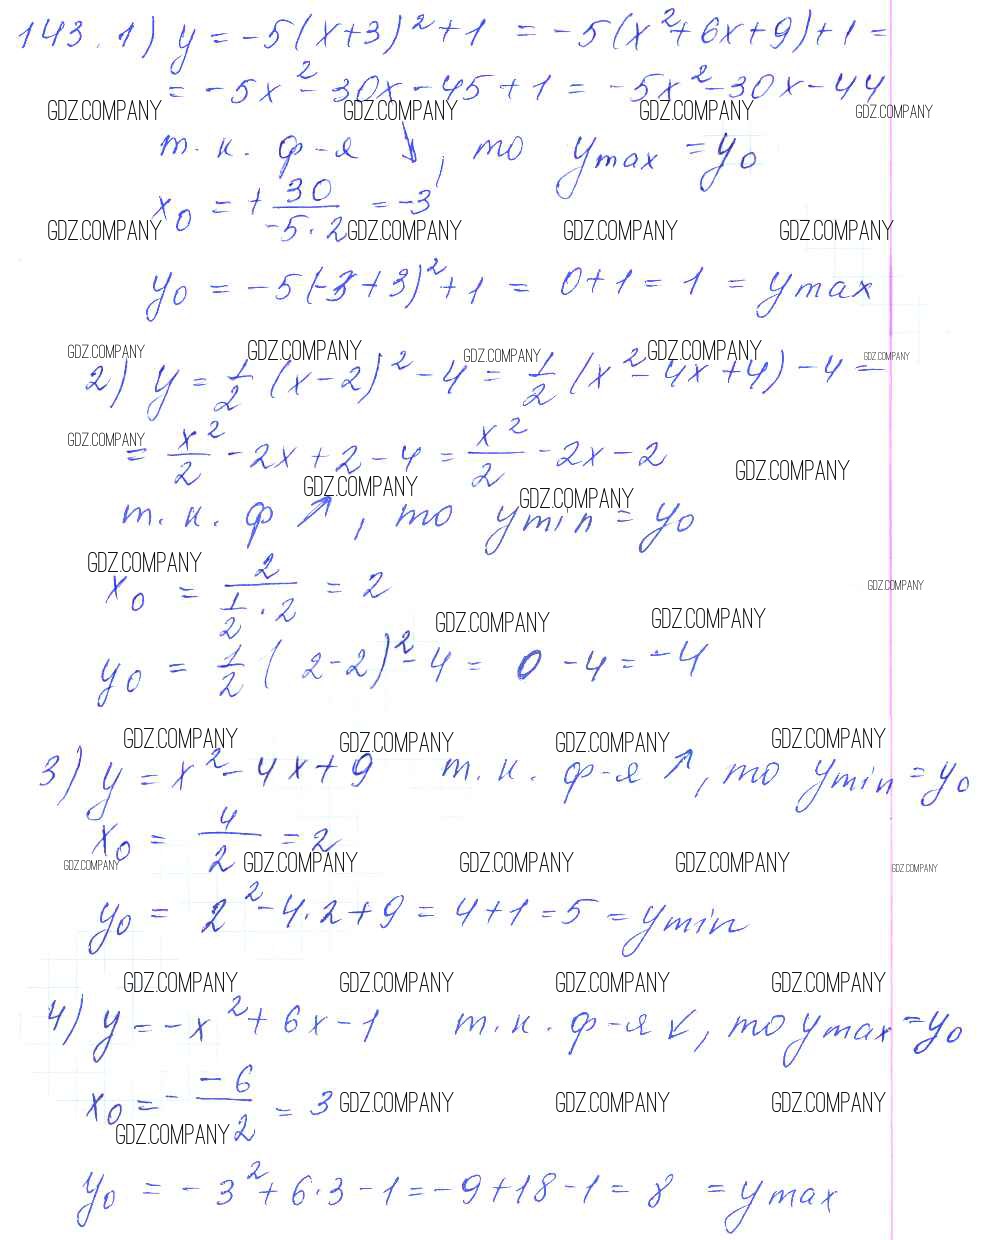 143. 1) y = -5(x+3)² + 1 = -5(x² + 6x + 9) + 1 =
= -5x² - 30x - 45 + 1 = -5x² - 30x - 44
GDZ.COMPANY GDZ.COMPANY GDZ.COMPANY GDZ.COMPANY
т. к. ф-я ↓, то y max = y₀
x₀ = + 30/(-5·2) = -3
GDZ.COMPANY GDZ.COMPANY GDZ.COMPANY GDZ.COMPANY
y₀ = -5(-3+3)² + 1 = 0+1 = 1 = y max
GDZ.COMPANY GDZ.COMPANY GDZ.COMPANY GDZ.COMPANY GDZ.COMPANY
2) y = 1/2 (x-2)² - 4 = 1/2 (x² - 4x + 4) - 4 =
GDZ.COMPANY
= x²/2 - 2x + 2 - 4 = x²/2 - 2x - 2
GDZ.COMPANY
GDZ.COMPANY GDZ.COMPANY
т. к. ф ↗, то y min = y₀
GDZ.COMPANY GDZ.COMPANY
x₀ = 2/(1/2 · 2) = 2
GDZ.COMPANY GDZ.COMPANY
y₀ = 1/2 (2-2)² - 4 = 0 - 4 = -4
GDZ.COMPANY GDZ.COMPANY GDZ.COMPANY GDZ.COMPANY
3) y = x² - 4x + 9 т. к. ф-я ↗, то y min = y₀
x₀ = 4/2 = 2
GDZ.COMPANY GDZ.COMPANY GDZ.COMPANY GDZ.COMPANY GDZ.COMPANY
y₀ = 2² - 4·2 + 9 = 4+1 = 5 = y min
GDZ.COMPANY GDZ.COMPANY GDZ.COMPANY GDZ.COMPANY
4) y = -x² + 6x - 1 т. к. ф-я ↙, то y max = y₀
x₀ = - -6/2 = 3
GDZ.COMPANY GDZ.COMPANY GDZ.COMPANY
GDZ.COMPANY
y₀ = -3² + 6·3 - 1 = -9+18-1 = 8 = y max